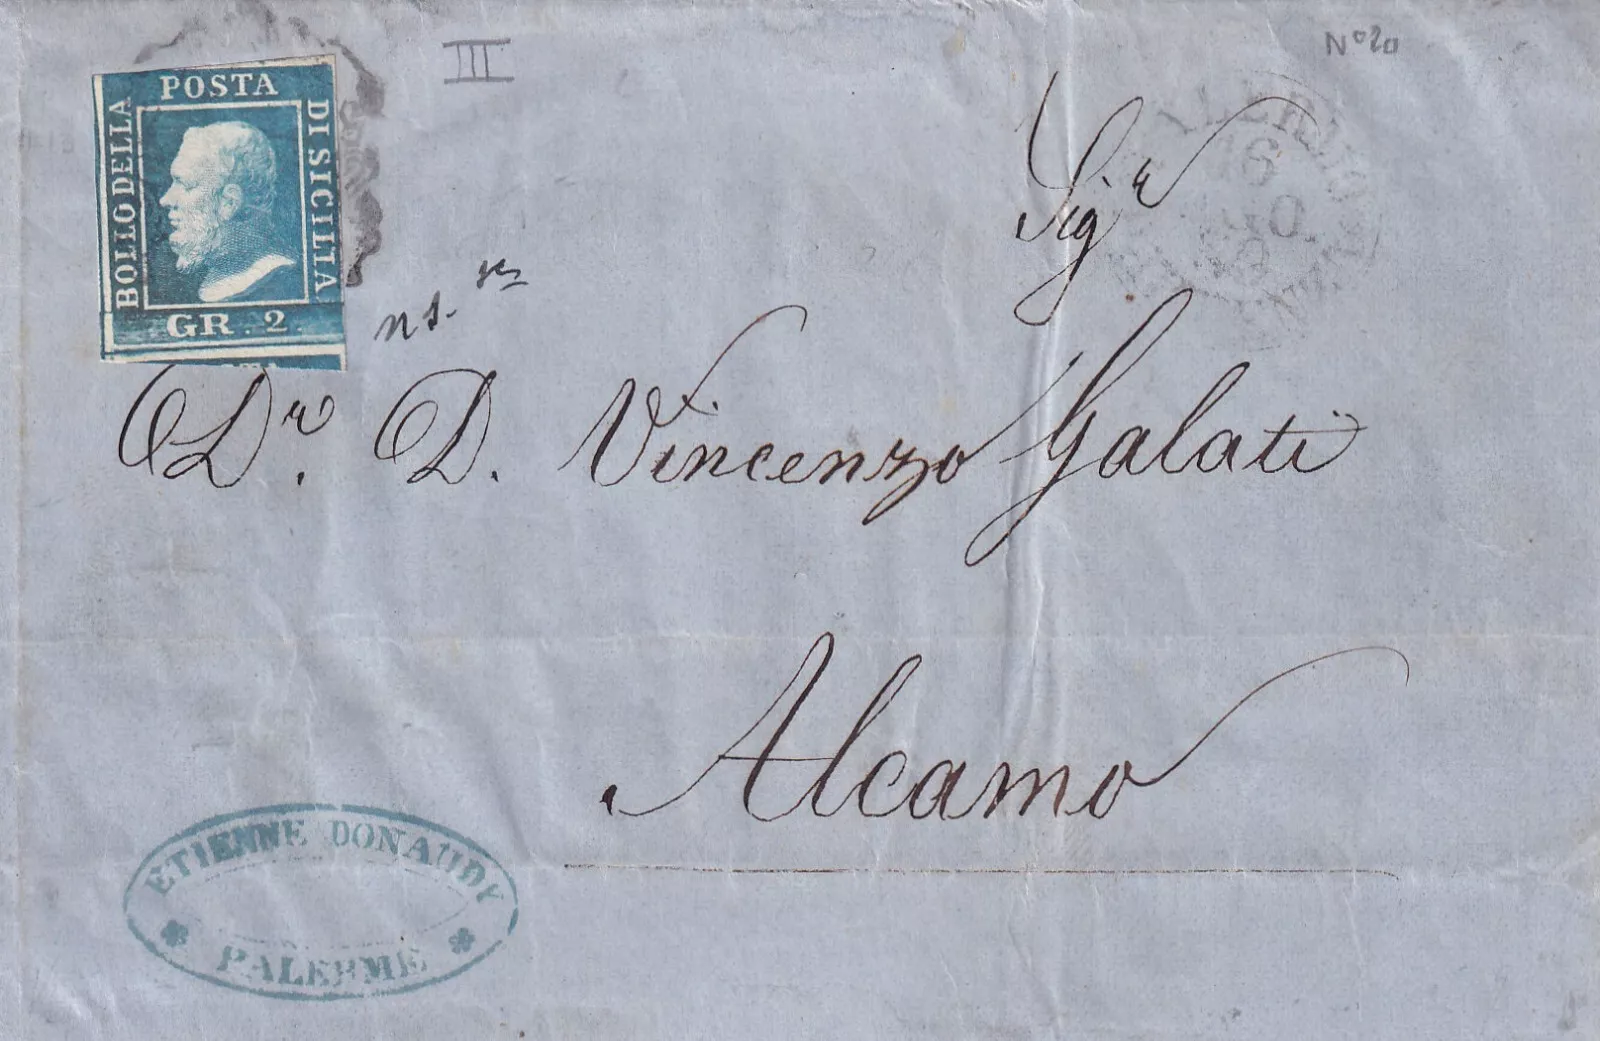 POSTA
BOLLO DELLA
DI SICILIA
GR. 2.
III
N° 20
PALERMO
16
Sig.r
D.r D. Vincenzo Galati
Alcamo
ETIENNE DONAUDY
PALERME